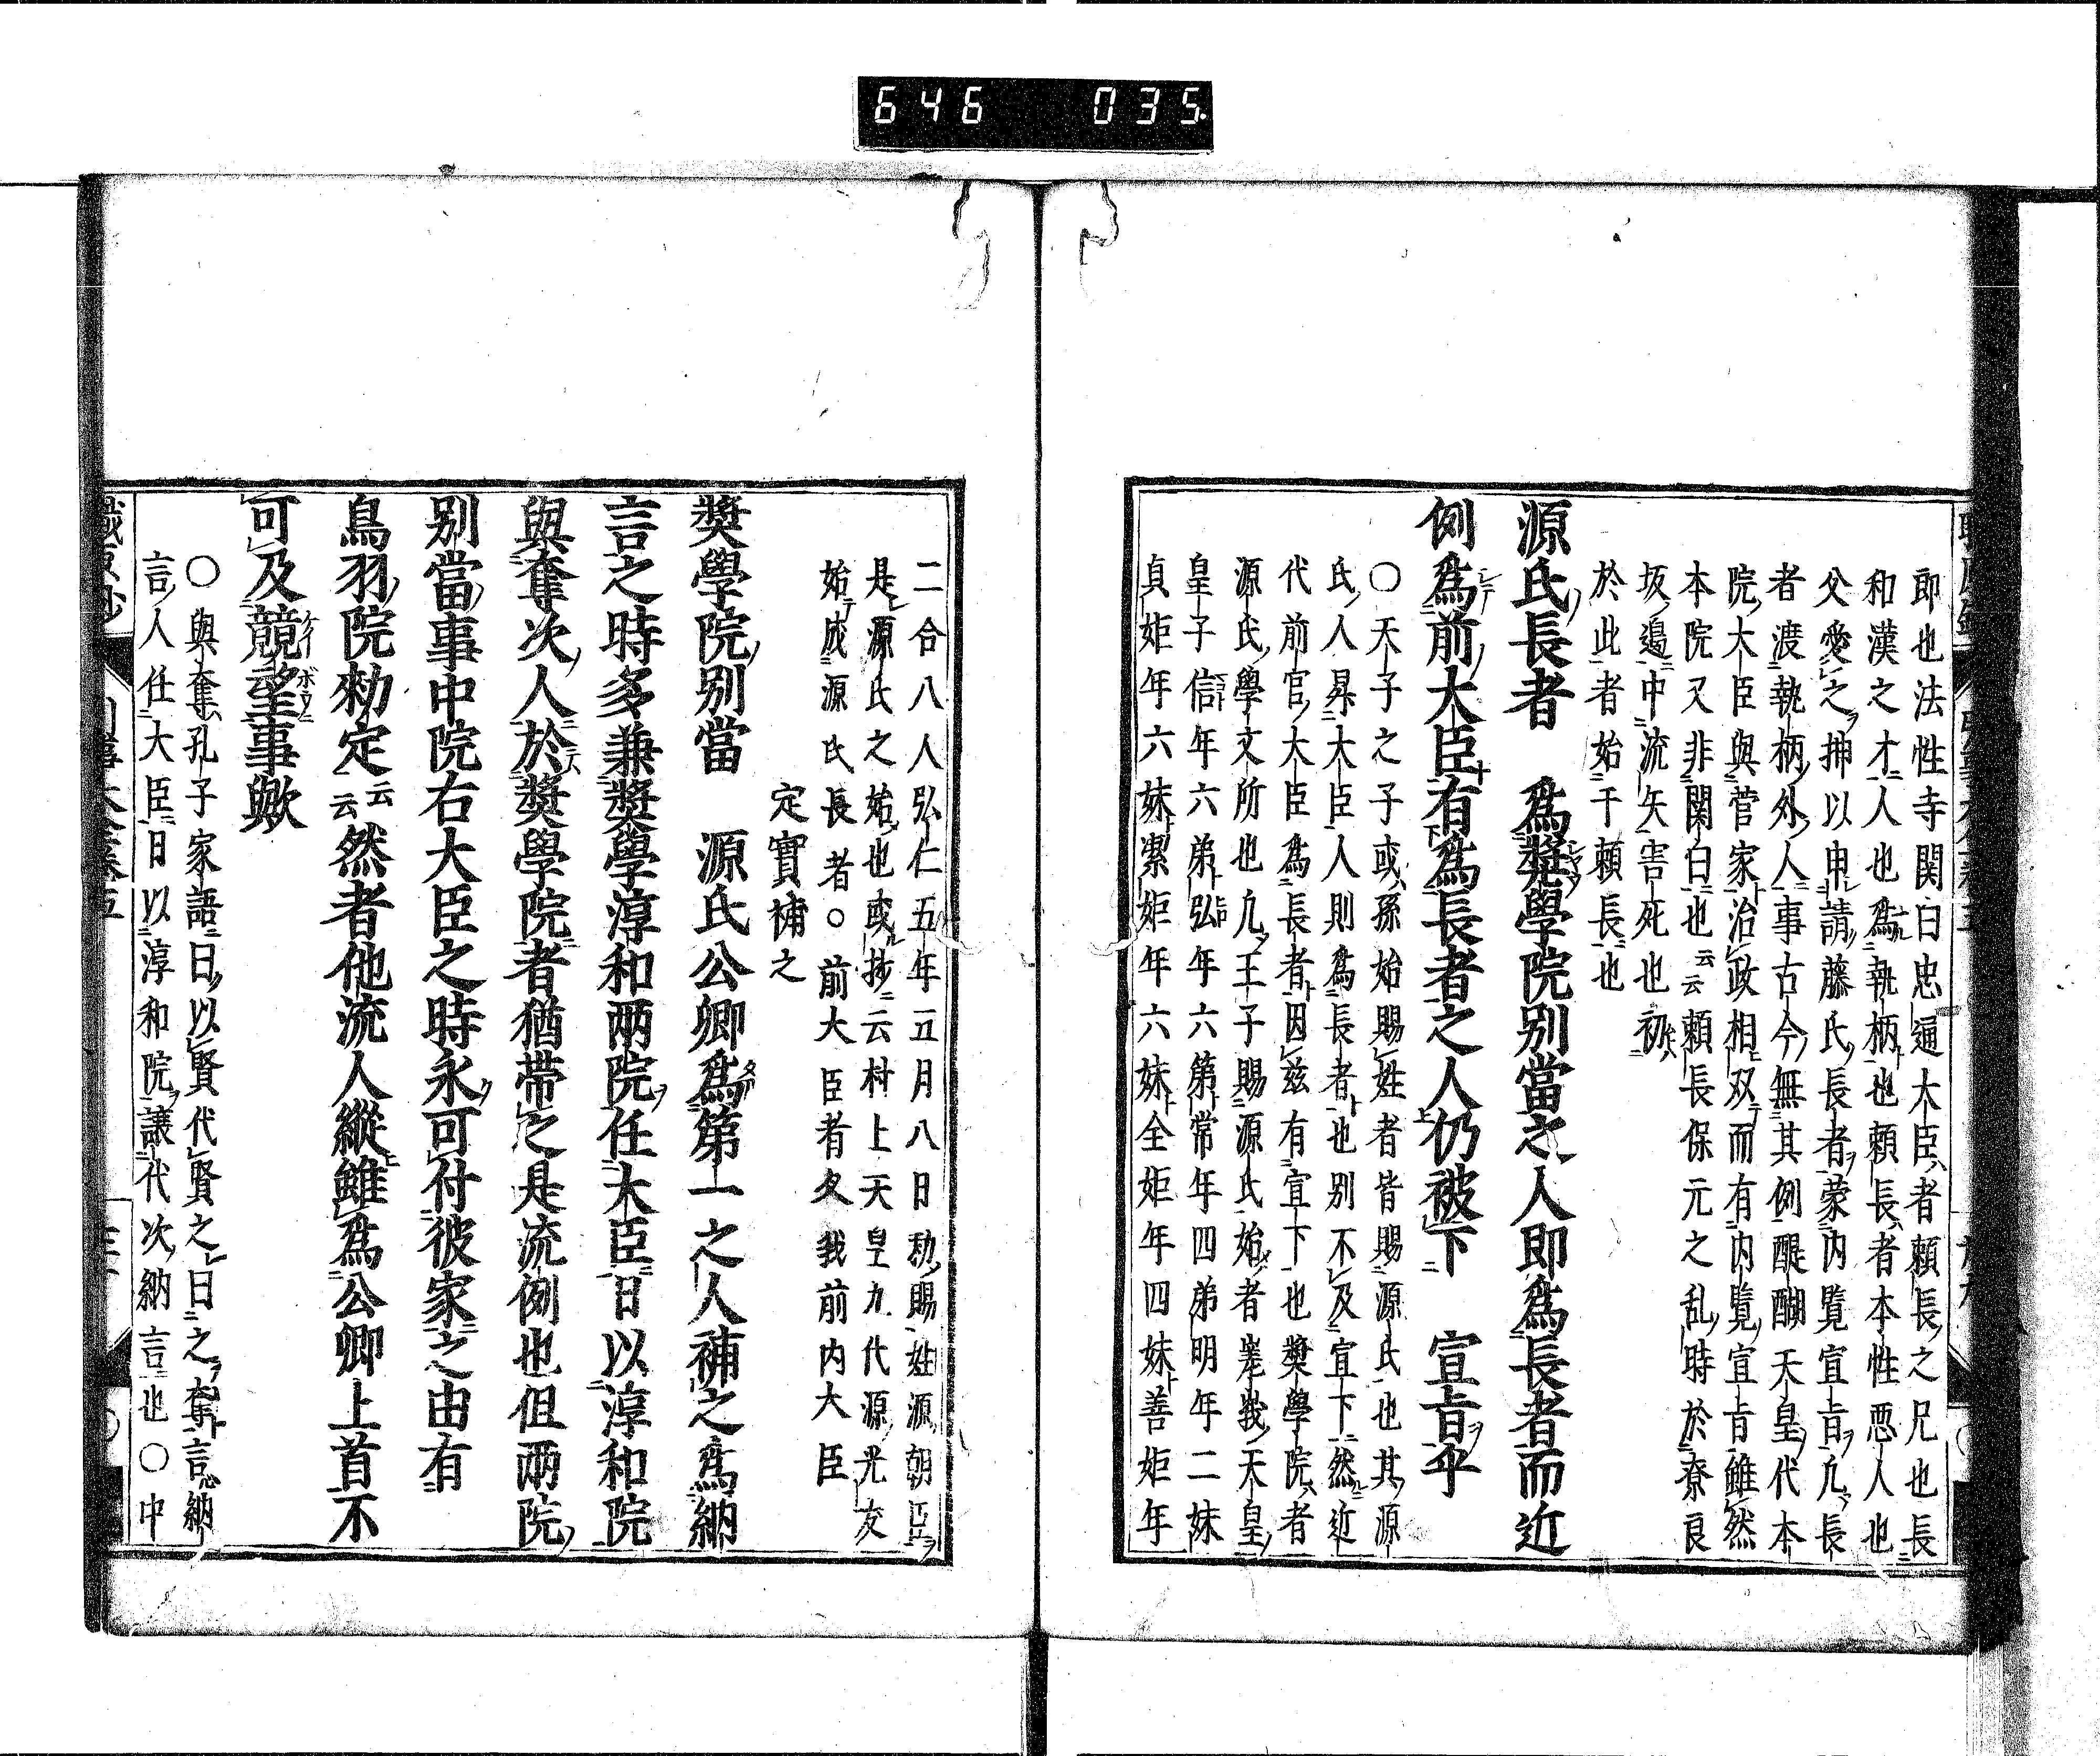 646 035
即也法性寺関白忠通大臣者頼長之兄也長
和漢之才人也為執柄也頼長者本性悪人也
父愛之抻以申請藤氏長者蒙内覧宣旨凢長
者渡執柄外人事古今無其例醍醐天皇代本
院大臣與菅家治政相双而有内覧宣旨雖然
本院又非関白也云云頼長保元之乱時於奈良
坂邉中流矢害死也初
於此者始于頼長也
源氏長者　為奨學院别當之人即為長者而近
例為前大臣有為長者之人仍被下　宣旨乎
〇天子之子或孫始賜姓者皆賜源氏也其源
氏人昇大臣人則為長者也别不及宣下然近
代前官大臣為長者因茲有宣下也奨學院者
源氏學文所也凢王子賜源氏始者嵯峩天皇
皇子信年六弟弘年六第常年四弟明年二妹
貞姫年六妹潔姫年六妹全姫年四妹善姫年
二合八人弘仁五年五月八日勅賜姓源朝臣
是源氏之始也或抄云村上天皇九代源光友
始成源氏長者。前大臣者久我前内大臣
定實補之
奨學院别當　源氏公卿為第一之人補之為納
言之時多兼奨學淳和两院任大臣日以淳和院
與奪次人於奨學院者猶帯之是流例也但两院
别當事中院右大臣之時永可付彼家之由有
鳥羽院勅定云云然者他流人縱雖為公卿上首不
可及競望事歟
〇與奪孔子家語曰以賢代賢之曰之奪言納
言人任大臣日以淳和院讓代次納言也〇中